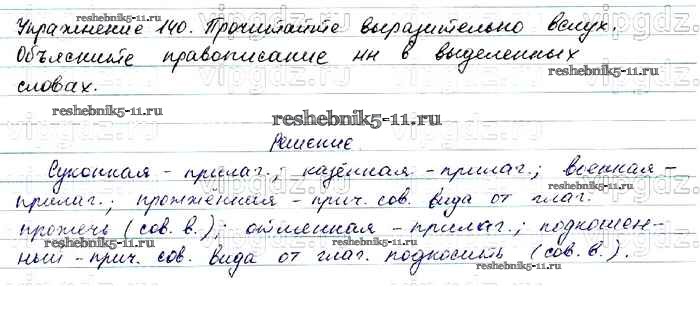 Упражнение 140. Прочитайте выразительно вслух.
Объясните правописание нн в выделенных
словах.
reshebnik5-11.ru
reshebnik5-11.ru
reshebnik5-11.ru
reshebnik5-11.ru
Решение.
Суконная - прилаг.; казённая - прилаг.; военная -
прилаг.; прожжённая - прич. сов. вида от глаг.
прожечь (сов. в.); отменная - прилаг.; подкошен-
ный - прич. сов. вида от глаг. подкосить (сов. в.).
reshebnik5-11.ru
reshebnik5-11.ru